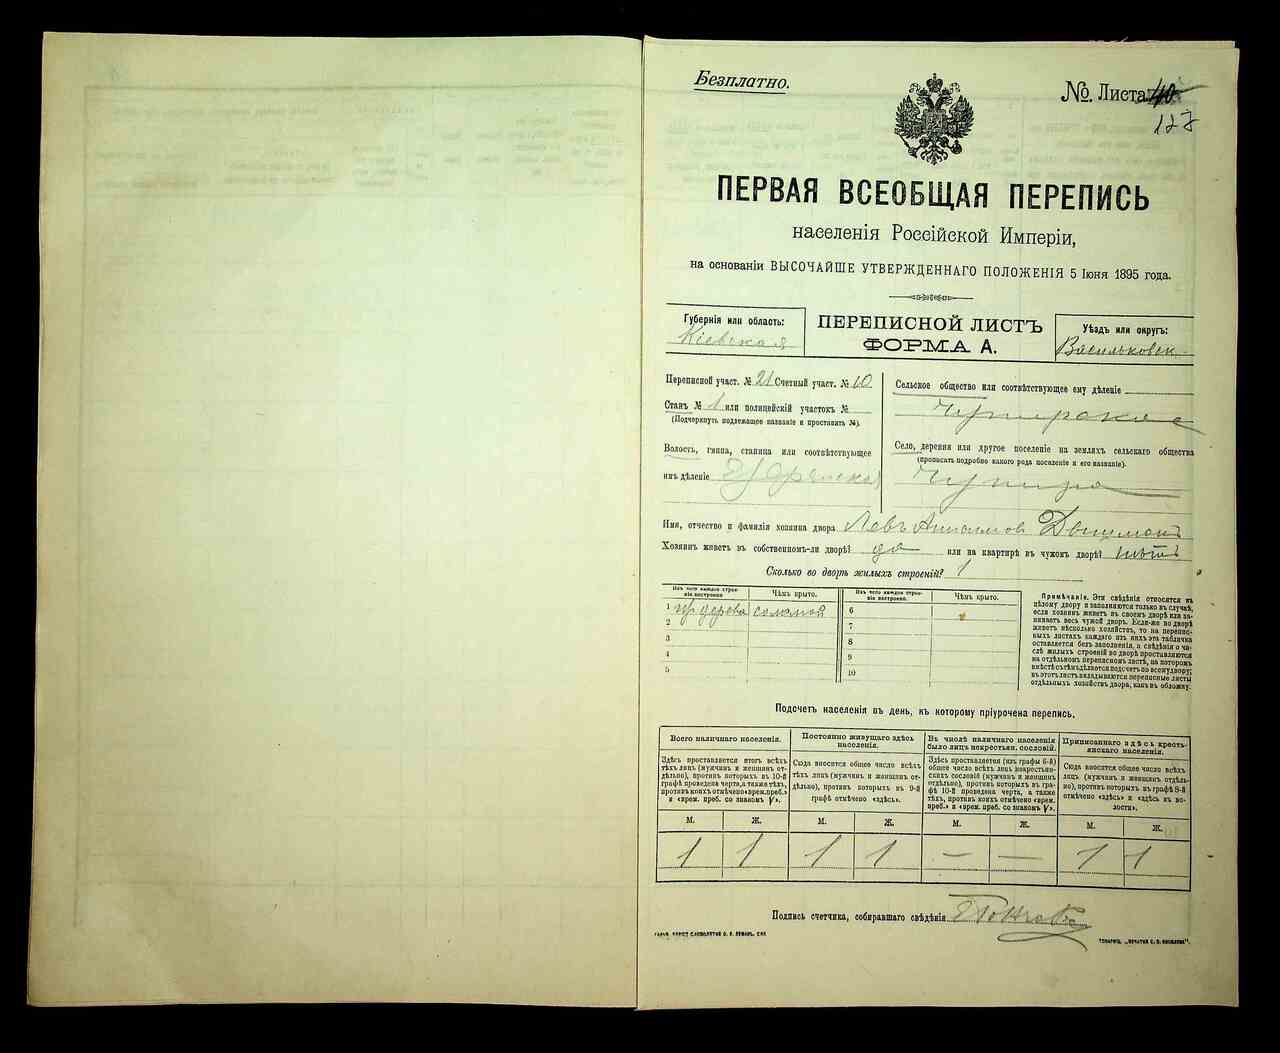 Безплатно.
№. Листа 40
127
ПЕРВАЯ ВСЕОБЩАЯ ПЕРЕПИСЬ
населенія Россійской Имперіи,
на основаніи ВЫСОЧАЙШЕ УТВЕРЖДЕННАГО ПОЛОЖЕНІЯ 5 Іюня 1895 года.
Губернія или область:
Кіевская
ПЕРЕПИСНОЙ ЛИСТЪ
ФОРМА А.
Уѣздъ или округъ:
Васильковск.
Переписной участ. № 21 Счетный участ. № 10
Станъ № 1 или полицейскій участокъ №
(Подчеркнуть подлежащее названіе и проставить №).
Волость, гмина, станица или соотвѣтствующее
имъ дѣленіе
Сельское общество или соотвѣтствующее ему дѣленіе
Село, деревня или другое поселеніе на земляхъ сельскаго общества
(прописать подробно какого рода поселеніе и его названіе).
Имя, отчество и фамилія хозяина двора Левъ
Хозяинъ живетъ въ собственномъ-ли дворѣ? да или на квартирѣ въ чужомъ дворѣ? нѣтъ
Сколько во дворѣ жилыхъ строеній? 1
Изъ чего каждое строе-
ніе построено.
Чѣмъ крыто.
Изъ чего каждое строе-
ніе построено.
Чѣмъ крыто.
1 дерева соломой
2
3
4
5
6
7
8
9
10
Примѣчаніе. Эти свѣдѣнія относятся къ
цѣлому двору и заполняются только въ случаѣ,
если хозяинъ живетъ въ своемъ дворѣ или за-
нимаетъ весь чужой дворъ. Если-же во дворѣ
живетъ нѣсколько хозяйствъ, то на перепис-
ныхъ листахъ каждаго изъ нихъ эта табличка
оставляется безъ заполненія, а свѣдѣнія о чи-
слѣ жилыхъ строеній во дворѣ проставляются
на отдѣльномъ переписномъ листѣ, на которомъ
вмѣстѣ съ тѣмъ дѣлается подсчетъ по всему двору;
въ этотъ листъ вкладываются переписные листы
отдѣльныхъ хозяйствъ двора, какъ въ обложку.
Подсчетъ населенія въ день, къ которому пріурочена перепись.
Всего наличнаго населенія.
Здѣсь проставляется итогъ всѣхъ
тѣхъ лицъ (мужчинъ и женщинъ от-
дѣльно), противъ которыхъ въ 10-й
графѣ проведена черта, а также тѣхъ,
противъ коихъ отмѣчено «врем. преб.»
и «врем. преб. со знакомъ V».
Постоянно живущаго здѣсь
населенія.
Сюда вносится общее число всѣхъ
тѣхъ лицъ (мужчинъ и женщинъ от-
дѣльно), противъ которыхъ въ 9-й
графѣ отмѣчено «здѣсь».
Въ числѣ наличнаго населенія
было лицъ некрестьян. сословій.
Здѣсь проставляется (изъ графы 6-й)
общее число всѣхъ лицъ некрестьян-
скихъ сословій (мужчинъ и женщинъ
отдѣльно), противъ которыхъ въ гра-
фѣ 10-й проведена черта, а также
тѣхъ, противъ коихъ отмѣчено «врем.
преб.» и «врем. преб. со знакомъ V».
Приписаннаго здѣсь кресть-
янскаго населенія.
Сюда вносится общее число всѣхъ
лицъ (мужчинъ и женщинъ отдѣль-
но), противъ которыхъ въ графѣ 8-й
отмѣчено «здѣсь» и «здѣсь въ во-
лости».
М. Ж. М. Ж. М. Ж. М. Ж.
1 1 1 1 — — 1 1
Подпись счетчика, собиравшаго свѣдѣнія